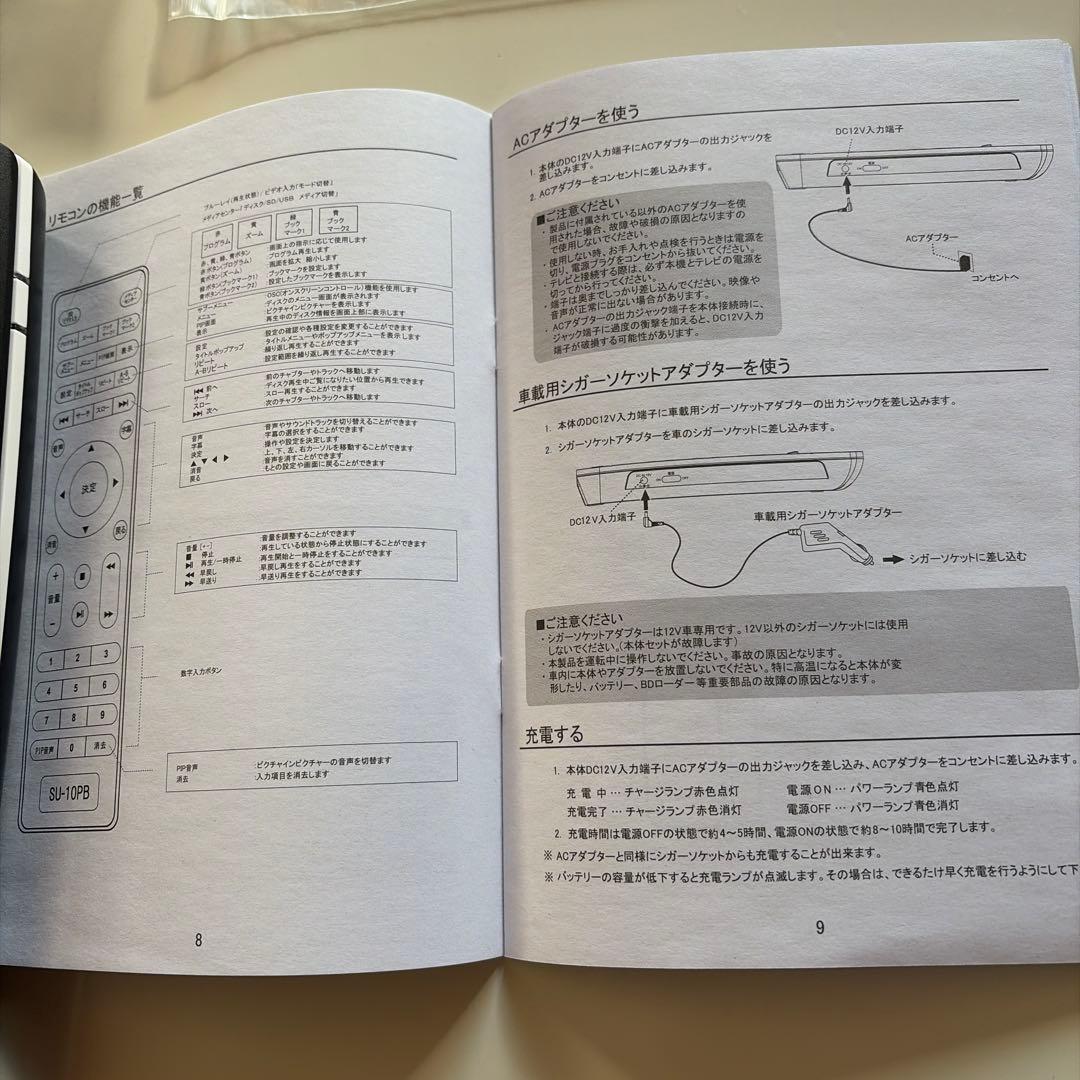 リモコンの機能一覧
ブルーレイ(再生状態)/ ビデオ入力「モード切替」
メディアセンター「ディスク/SD/USB メディア切替」
赤 プログラム
黄 ズーム
緑 ブック マーク1
青 ブック マーク2
赤、黄、緑、青ボタン :画面上の指示に応じて使用します
赤ボタン(プログラム) :プログラム再生します
黄ボタン(ズーム) :画面を拡大 縮小します
:ブックマークを設定します
青ボタン(ブックマーク2) :設定したブックマークを表示します
サブ-メニュー :OSC(オンスクリーンコントロール)機能を使用します
メニュー :ディスクのメニュー画面が表示されます
PIP画面 :ピクチャインピクチャーを表示します
表示 :再生中のディスク情報を画面上部に表示します
設定 :設定の確認や各種設定を変更することができます
タイトルポップアップ :タイトルメニューやポップアップメニューを表示します
リピート :繰り返し再生することができます
A-Bリピート :設定範囲を繰り返し再生することができます
前へ :前のチャプターやトラックへ移動します
サーチ :ディスク再生中ご覧になりたい位置から再生できます
スロー :スロー再生することができます
次へ :次のチャプターやトラックへ移動します
音声 :音声やサウンドトラックを切り替えることができます
字幕 :字幕の選択をすることができます
決定 :操作や設定を決定します
▲ ▼ ◀ ▶ :上、下、左、右カーソルを移動することができます
消音 :音声を消すことができます
戻る :もとの設定や画面に戻ることができます
音量 [+-] :音量を調整することができます
■ 停止 :再生している状態から停止状態にすることができます
再生/一時停止 :再生開始と一時停止をすることができます
◀◀ 早戻し :早戻し再生をすることができます
▶▶ 早送り :早送り再生をすることができます
数字入力ボタン
PIP音声 :ピクチャインピクチャーの音声を切替ます
消去 :入力項目を消去します
プログラム ズーム ブックマーク1 ブックマーク2
メニュー PIP画面 表示
設定 タイトルポップアップ リピート A-Bリピート
サーチ スロー
音声 字幕
決定
消音 戻る
+ 音量 −
1 2 3
4 5 6
7 8 9
PIP音声 0 消去
SU-10PB
8
ACアダプターを使う
1. 本体のDC12V入力端子にACアダプターの出力ジャックを
差し込みます。
2. ACアダプターをコンセントに差し込みます。
■ご注意ください
・製品に付属されている以外のACアダプターを使
用された場合、故障や破損の原因となりますの
で使用しないでください。
・使用しない時、お手入れや点検を行うときは電源を
切り、電源プラグをコンセントから抜いてください。
・テレビと接続する際は、必ず本機とテレビの電源を
切ってから行ってください。
・端子は奥までしっかり差し込んでください。映像や
音声が正常に出ない場合があります。
・ACアダプターの出力ジャック端子を本体接続時に、
ジャック端子に過度の衝撃を加えると、DC12V入力
端子が破損する可能性があります。
DC12V入力端子
ACアダプター
コンセントへ
車載用シガーソケットアダプターを使う
1. 本体のDC12V入力端子に車載用シガーソケットアダプターの出力ジャックを差し込みます。
2. シガーソケットアダプターを車のシガーソケットに差し込みます。
DC12V入力端子
車載用シガーソケットアダプター
シガーソケットに差し込む
■ご注意ください
・シガーソケットアダプターは12V車専用です。12V以外のシガーソケットには使用
しないでください。(本体セットが故障します)
・本製品を運転中に操作しないでください。事故の原因となります。
・車内に本体やアダプターを放置しないでください。特に高温になると本体が変
形したり、バッテリー、BDローダー等重要部品の故障の原因となります。
充電する
1. 本体DC12V入力端子にACアダプターの出力ジャックを差し込み、ACアダプターをコンセントに差し込みます。
充 電 中 … チャージランプ赤色点灯 電源ON … パワーランプ青色点灯
充電完了 … チャージランプ赤色消灯 電源OFF … パワーランプ青色消灯
2. 充電時間は電源OFFの状態で約4～5時間、電源ONの状態で約8～10時間で完了します。
※ ACアダプターと同様にシガーソケットからも充電することが出来ます。
※ バッテリーの容量が低下すると充電ランプが点滅します。その場合は、できるたけ早く充電を行うようにして下
9